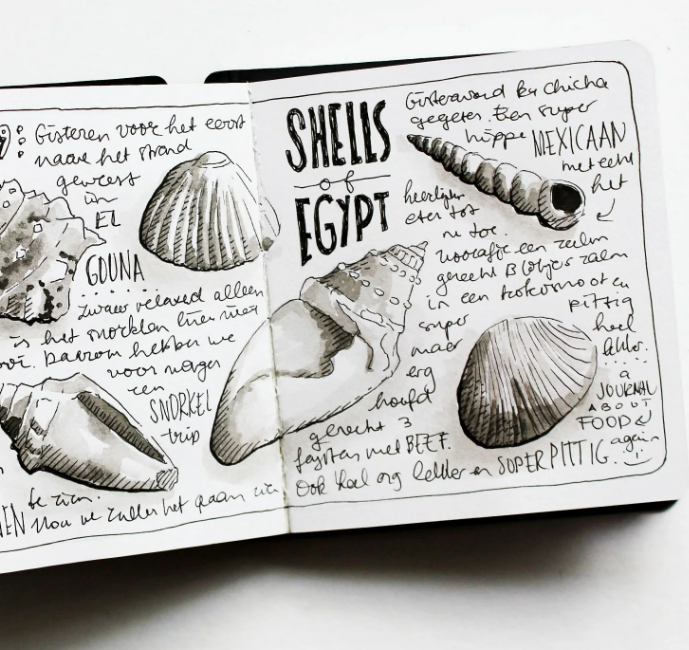 Gisteren voor het eerst
naar het strand
geweest
in
EL
GOUNA
zwaar relaxed alleen
is het snorkelen hier niet
. Daarom hebben we
voor morgen
een
SNORKEL
trip
te zien.
Nou we zullen het gaan zien
SHELLS
of
EGYPT
Gisteravond bij chicha
gegeten. Een super
hippe MEXICAAN
met echt
het
heerlijkste
eten tot
nu toe.
Voorafje een zalm
gerecht Blokjes zalm
in een kokosnoot en
pittig
super
heel
maar
lekker.
erg
hoofd
gerecht 3
fajitas met BEEF.
Ook heel erg lekker en SUPER PITTIG.
a
JOURNAL
ABOUT
FOOD
again